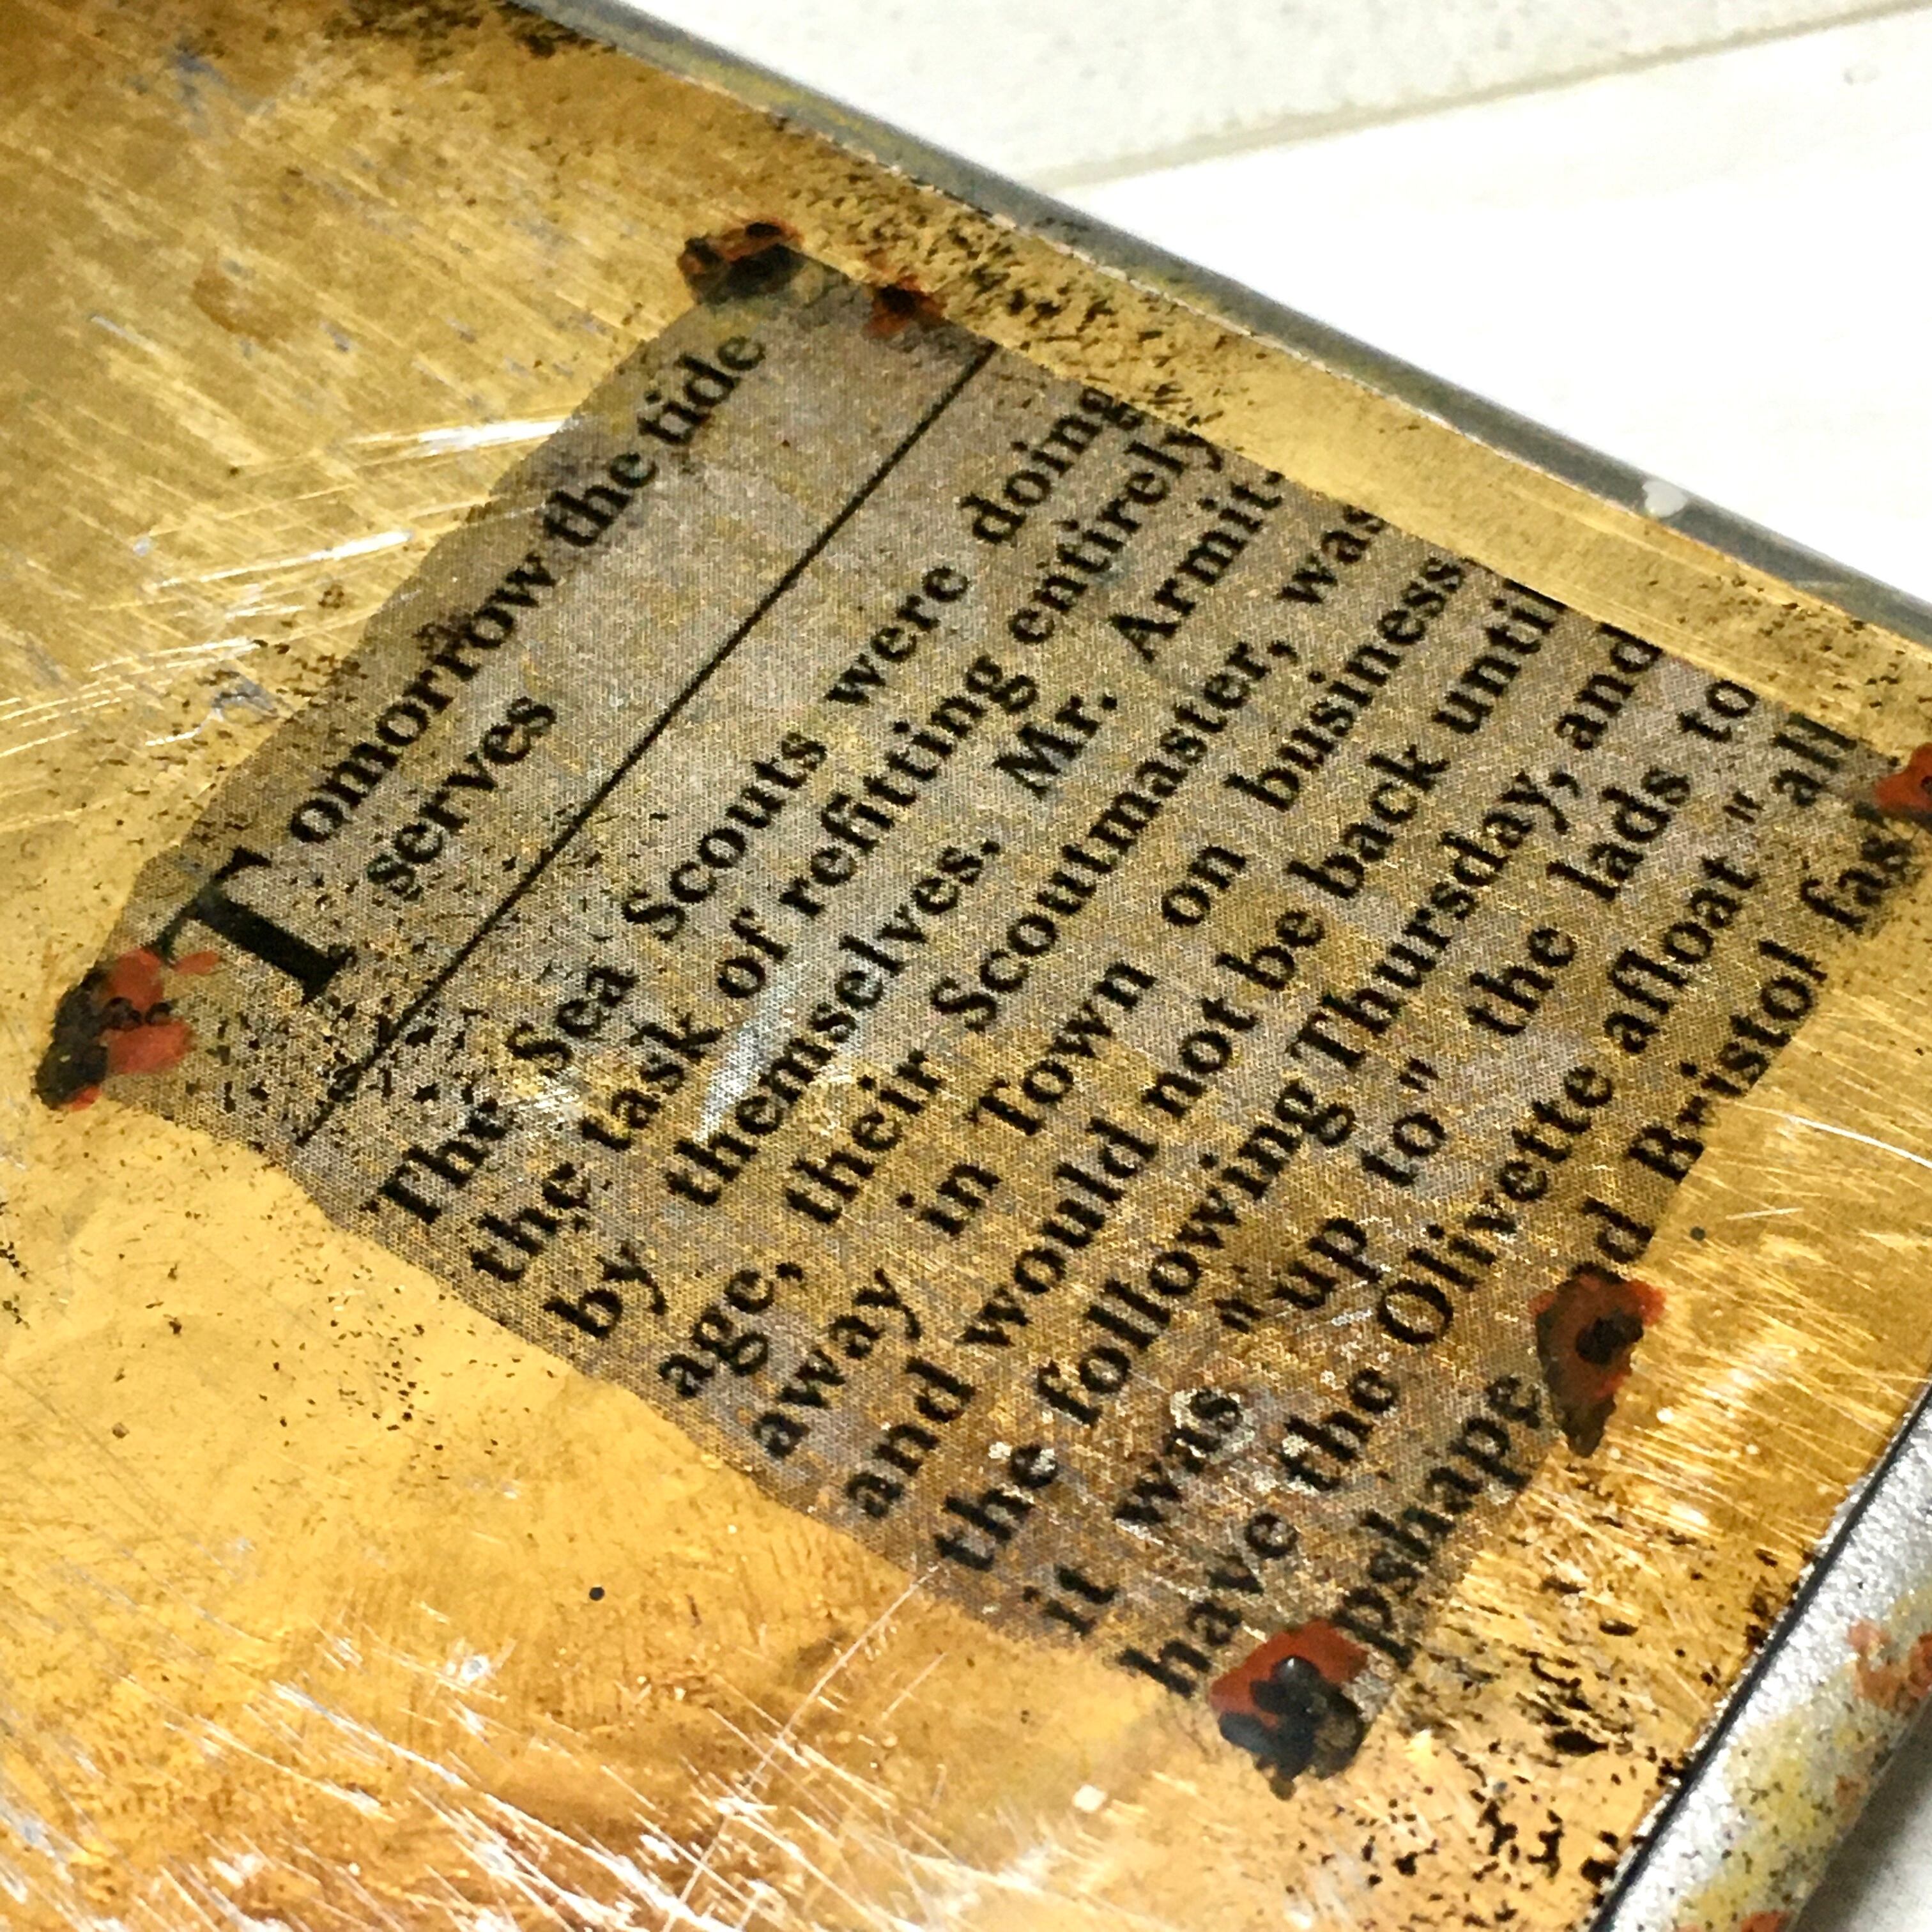 Tomorrow the tide
serves
The Sea Scouts were doing
the task of refitting entirely
by themselves. Mr. Armit-
age, their Scoutmaster, was
away in Town on business
and would not be back until
the following Thursday, and
it was "up to" the lads to
have the Olivette afloat "all
pshape d Bristol fas